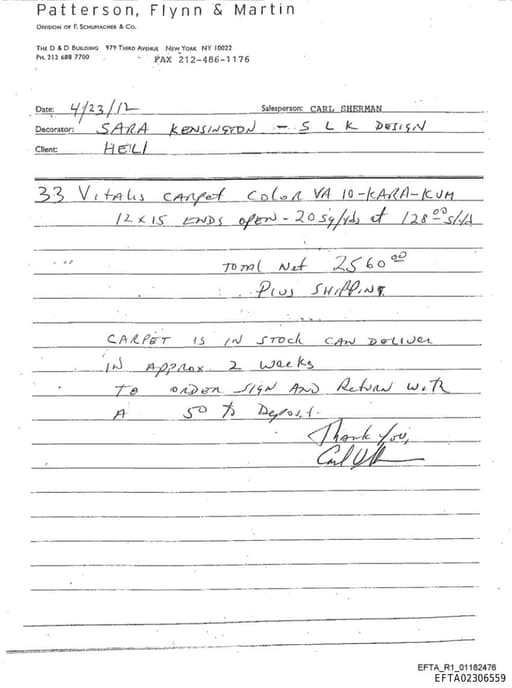 Patterson, Flynn & Martin
DIVISION OF F. SCHUMACHER & CO.
THE D & D BUILDING 979 THIRD AVENUE NEW YORK NY 10022
PH. 212 688 7700 FAX 212-486-1176
Date: 4/23/12 Salesperson: CARL SHERMAN
Decorator: SARA KENSINGTON - S L K DESIGN
Client: HELI
33 Vitalis CARPET COLOR VA 10-KARA-KUM
12 x 15 ENDS OPEN - 20 sq/yds at 128.00 s/yd
TOTAL Net 2560.00
Plus SHIPPING
CARPET IS IN STOCK CAN DELIVER
IN APPROX 2 WEEKS
TO ORDER SIGN AND RETURN WITH
A 50 % Deposit.
Thank You,
Carl
EFTA_R1_01182476
EFTA02306559